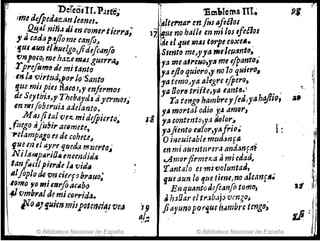 Decetis II. Parte,
me despedazan leones.
Qual niña di en comer tierra,
y à cada passo me canso,
que aun el huelgo, si descanso
vn poco, me haze mas guerra.
Presumo de mi tanto
en la virtud, por lo Santo
que mis pies flacos, y enfermos
de Scytbia, y Thebayda à yermos,
en mesfobruia adelanto.
Mas si tal vez mi despierto,
fuego à subir acomete,
relampago es de cohete,
que en el ayre queda muerto,
Ni lampara encendida
tan facil pierde la vida
al soplo de vn cierço brauo,
como yo mi curso acabo
al vmbral de mi corrida.
No ay quien mis potencias vea
Emblema III.
alternar en sus afectos
que no halle en mi los efectos
de el que mas torpeessea.
Siento me, y ya me leuanto,
ya me atreuo, ya me espanto,
ya esto quiero, y no lo quiero,
ya temo, ya alegre espero,
ya lloro triste, ya canto.
Ya tengo hambre, y sed, ya hastio,
ya mortal odio ya amor,
ya contento, ya dolor,
ya siento ardor, ya frio:
O ineuitable mudança
en mi auentura andança
Amor firmeza à mi edad,
Tantalo es mi voluntad,
que aun lo que tiene, no alcança:
En quanto descanso tomo,
à hallar el trabajo vengo,
si ayuno porque hambre tengo,
© Biblioteca Nacional de España
© Biblioteca Nacional de España